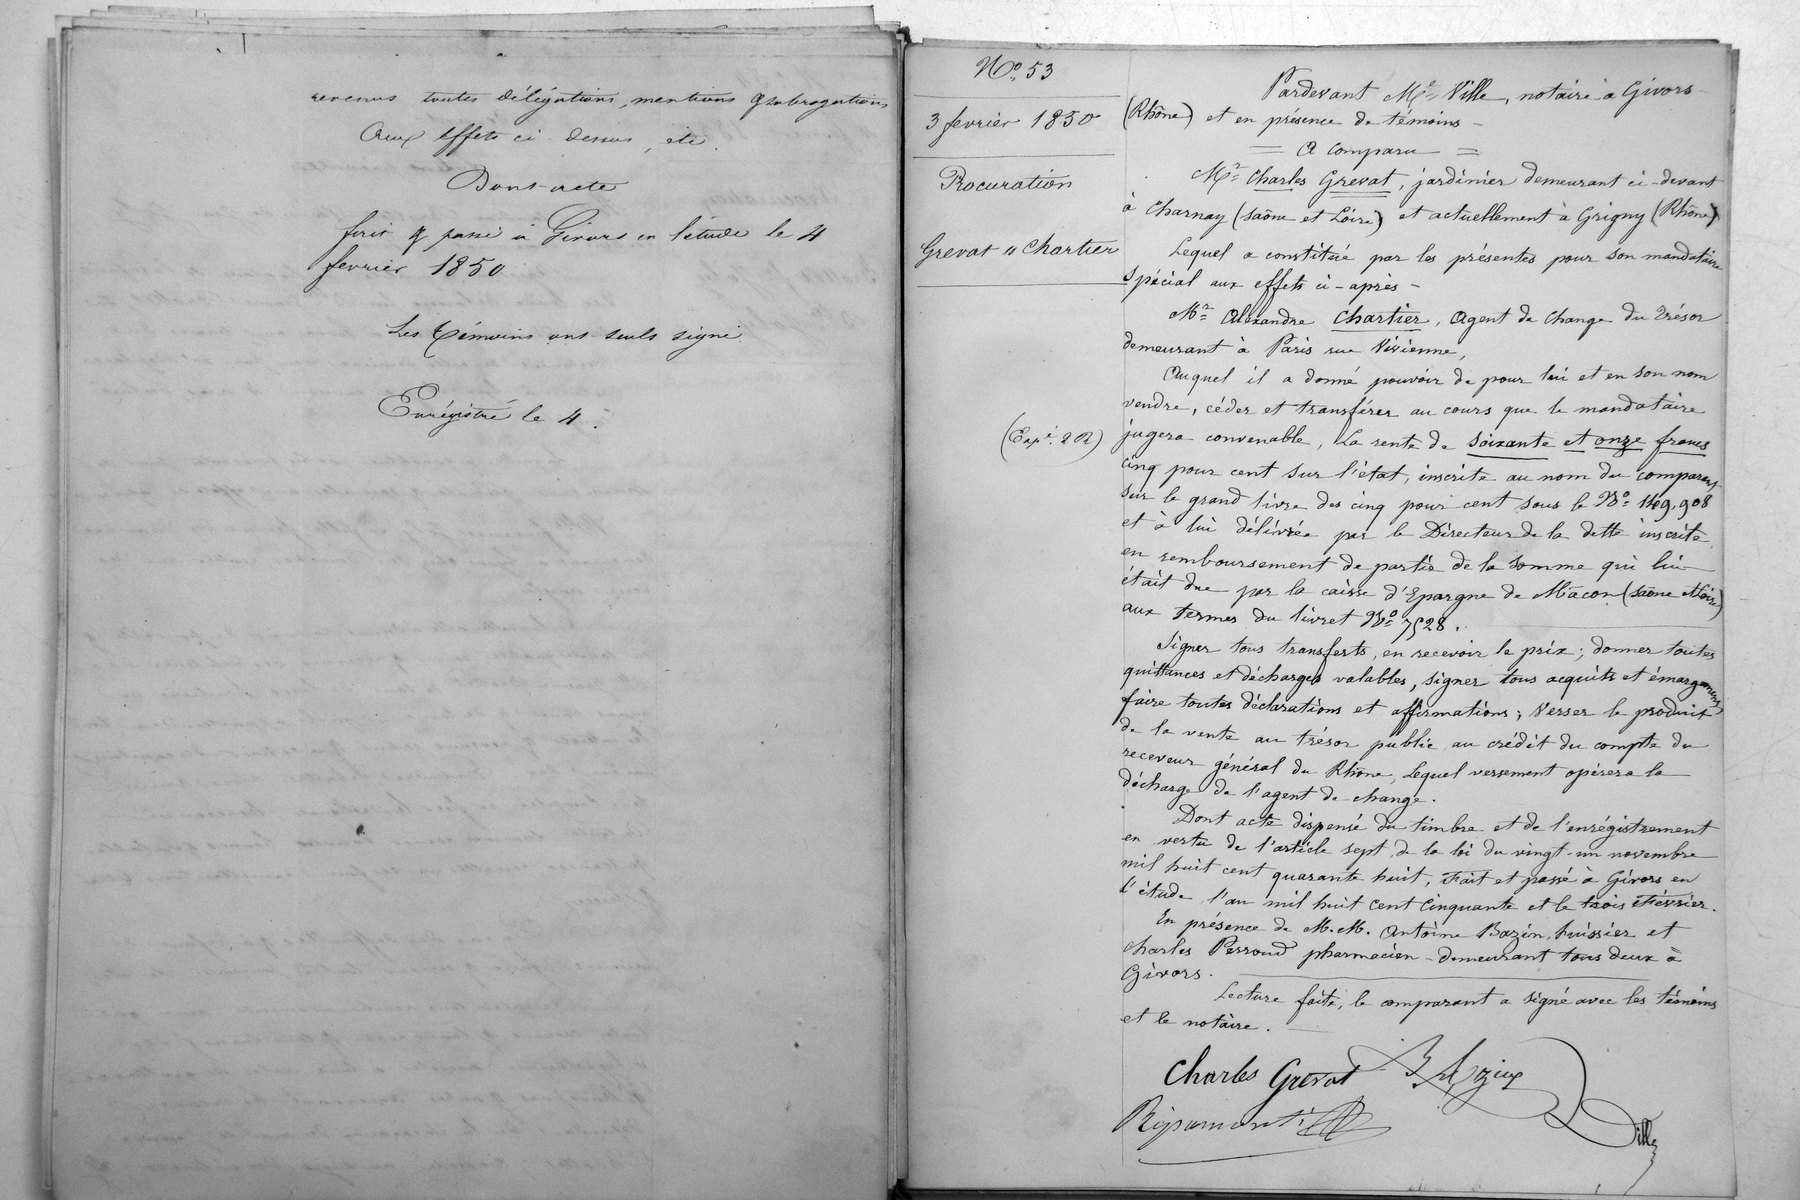 revenus toutes délégations, mentions & subrogations
Aux effets ci-dessus, etc.
Dont acte
fait & passé à Givors en l'étude le 4
fevrier 1850
Les témoins ont seuls signé.
Enrégistré le 4.
No. 53
3 fevrier 1850
Procuration
Grevat à Chartier
(Expé. 2 R)
Pardevant Me. Ville, notaire à Givors
(Rhône) et en présence de témoins -
= A Comparu =
Mr. Charles Grevat, jardinier demeurant ci-devant
à Charnay (Saône et Loire) et actuellement à Grigny (Rhône)
Lequel a constitué par les présentes pour son mandataire
Spécial aux effets ci-après -
Mr. Alexandre Chartier, Agent de Change du Trésor
demeurant à Paris rue Vivienne,
Auquel il a donné pouvoir de pour lui et en son nom
vendre, céder et transférer au cours que le mandataire
jugera convenable, La rente de soixante et onze francs
cinq pour cent sur l'état, inscrite au nom du comparant
sur le grand livre des cinq pour cent sous le No. 149,908
et à lui délivrée par le Directeur de la dette inscrite,
en remboursement de partie de la somme qui lui
était due par la caisse d'Epargne de Mâcon (Saône et Loire)
aux termes du livret No. 7528.
Signer tous transferts, en recevoir le prix; donner toutes
quittances et décharges valables, signer tous acquits et émargements
faire toutes déclarations et affirmations; Verser le produit
de la vente au trésor public au crédit du compte du
receveur général du Rhône, Lequel versement opérera la
décharge de l'agent de change.
Dont acte dispensé du timbre et de l'enrégistrement
en vertu de l'article sept de la loi du vingt-un novembre
mil huit cent quarante huit, Fait et passé à Givors en
l'étude, l'an mil huit cent cinquante et le trois Février.
En présence de M.M. Antoine Bazin, huissier et
Charles Perroud pharmacien - demeurant tous deux à
Givors.
Lecture faite, le comparant a signé avec les témoins
et le notaire.
Charles Grevat
Ville